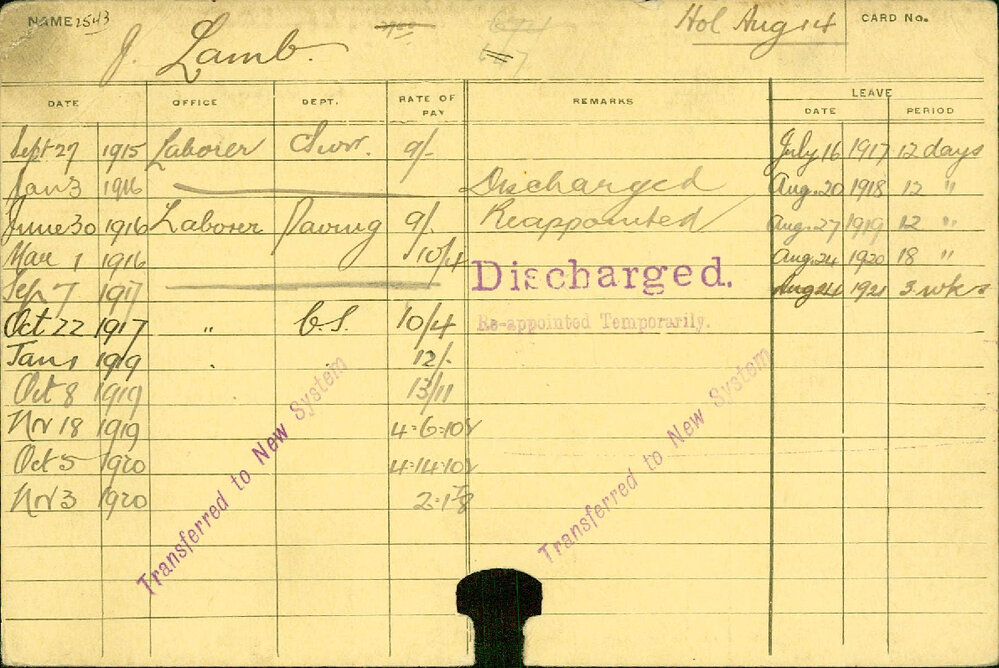 NAME 2543 Hol Aug 14 CARD No.
J. Lamb.
DATE OFFICE DEPT. RATE OF PAY REMARKS LEAVE
DATE PERIOD
Sept 27 1915 Laborer Surr. 9/- July 16 1917 12 days
Jan 3 1916 Discharged Aug. 20 1918 12 "
June 30 1916 Laborer Paving 9/- Reappointed Aug. 27 1919 12 "
Mar 1 1916 10/4 Aug. 24 1920 18 "
Sep 7 1917 Discharged. Aug 24 1921 3 wks
Oct 22 1917 " C.S. 10/4 Re-appointed Temporarily.
Jan 1 1919 12/-
Oct 8 1919 13/11
Nov 18 1919 4-6-10
Oct 5 1920 4-14-10
Nov 3 1920 2-1-8
Transferred to New System
Transferred to New System